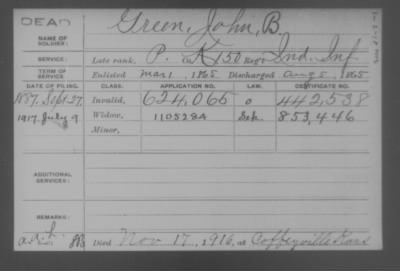 DEAD
NAME OF SOLDIER: Green, John, B.
SERVICE: Late rank, P. Co. K 150 Reg't Ind. Inf
TERM OF SERVICE: Enlisted Mar. 1, 1865, Discharged Aug 5, 1865
DATE OF FILING. CLASS. APPLICATION NO. LAW. CERTIFICATE NO.
1887. Sept. 27. Invalid, 624,065 o 442,538
1917. July 9 Widow, 1105284 Sep. 853,446
Minor,
ADDITIONAL SERVICES:
REMARKS:
Died Nov 17, 1916, at Coffeyville Kans